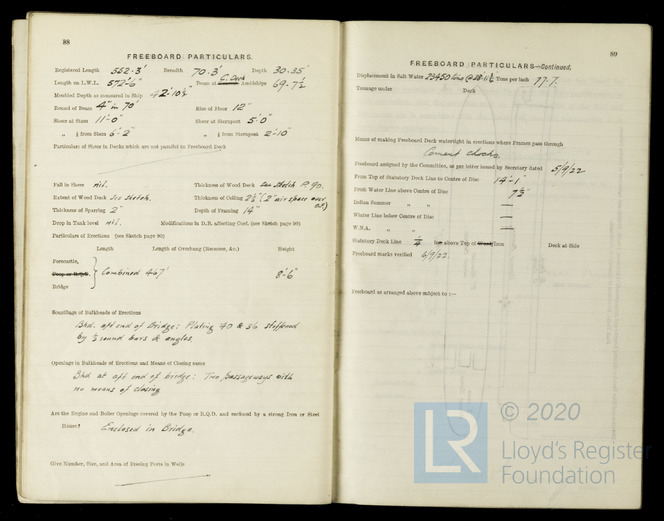 88
FREEBOARD PARTICULARS.
Registered Length 552·3' Breadth 70·3' Depth 30·35'
Length on L.W.L. 572'-6" Beam at C. Deck Amidships 69-7½
Moulded Depth as measured in Ship 42'-10½"
Round of Beam 4" in 70' Rise of Floor 12"
Sheer at Stem 11'-0" Sheer at Sternpost 5'-0"
" ¼ from Stem 6'-2" " ¼ from Sternpost 2'-10"
Particulars of Sheer in Decks which are not parallel to Freeboard Deck
Fall in Sheer Nil. Thickness of Wood Deck See sketch P. 90.
Extent of Wood Deck See sketch. Thickness of Ceiling 2½" (2" air space over
Thickness of Sparring 2" Depth of Framing 14"
Drop in Tank level Nil. Modifications in D.B. affecting Coef. (see Sketch page 90)
Particulars of Erections (see Sketch page 90)
Length Length of Overhang (Recesses, &c.) Height
Forecastle,
Bridge } Combined 467' 8'-6"
Scantlings of Bulkheads of Erections
Bhd. aft end of Bridge: Plating ·40 & ·36 stiffened
by ½ round bars & angles.
Openings in Bulkheads of Erections and Means of Closing same
Bhd at aft end of bridge: Two passageways with
no means of closing
Are the Engine and Boiler Openings covered by the Poop or R.Q.D. and enclosed by a strong Iron or Steel
House? Enclosed in Bridge.
Give Number, Size, and Area of Freeing Ports in Wells
89
FREEBOARD PARTICULARS—Continued.
Displacement in Salt Water 23450 tons @ Tons per Inch 77·7.
Tonnage under Deck
Means of making Freeboard Deck watertight in erections where Frames pass through
Cement chocks.
Freeboard assigned by the Committee, as per letter issued by Secretary dated 5/9/22
From Top of Statutory Deck Line to Centre of Disc 14'-1"
Fresh Water Line above Centre of Disc 7½"
Indian Summer " " —
Winter Line below Centre of Disc —
W.N.A. " " —
Statutory Deck Line ¼ above Top of Iron Deck at Side
Freeboard Marks verified 6/9/22.
Freeboard as arranged above subject to :—
LR © 2020
Lloyd's Register
Foundation